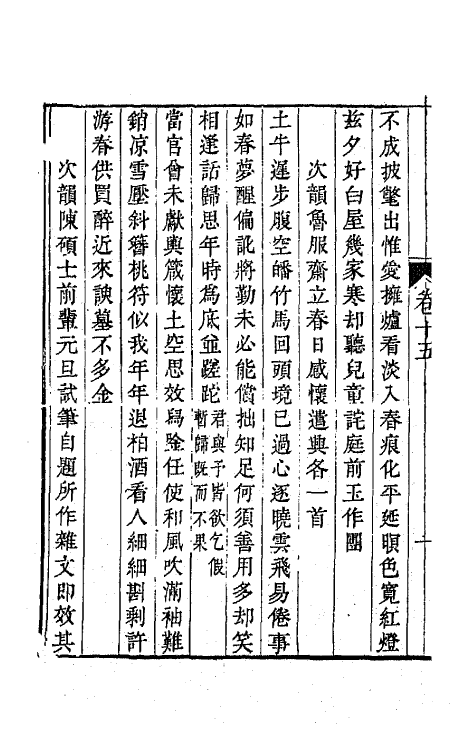 卷十五
不成披氅出惟愛擁爐看淡入春痕化平延暝色寬紅燈
玆夕好白屋幾家寒却聽兒童詫庭前玉作團
次韻魯服齋立春日感懷遣興各一首
土牛遲步腹空皤竹馬回頭境已過心逐曉雲飛易倦事
如春夢醒偏訛將勤未必能償拙知足何須善用多却笑
相逢話歸思年時爲底並蹉跎君與予皆欲乞假
暫歸既而不果
當官曾未獻輿箴懷土空思效舄唫任使和風吹滿袖難
銷凉雪壓斜簪桃符似我年年退柏酒看人細細斟剩許
游春供買醉近來諛墓不多金
次韻陳碩士前輩元旦試筆自題所作雜文即效其